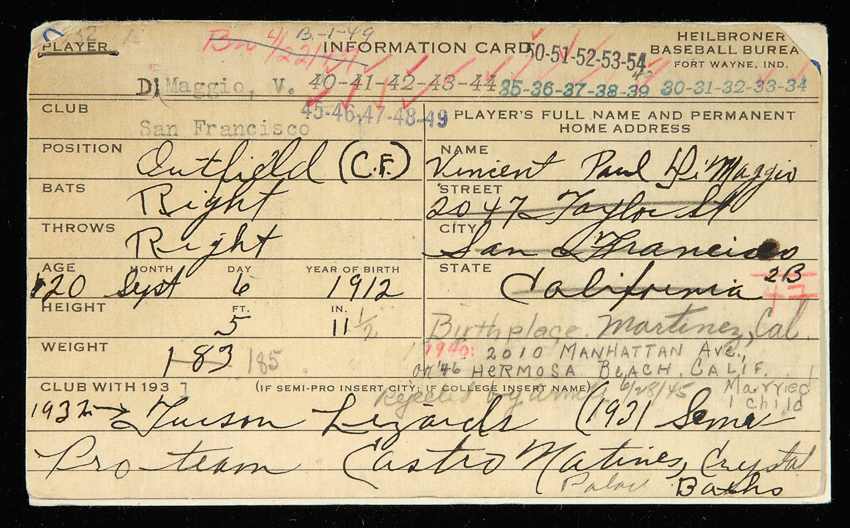 PLAYER
INFORMATION CARD
B-1-49
50-51-52-53-54
HEILBRONER
BASEBALL BUREA
FORT WAYNE, IND.
Di Maggio, V. 40-41-42-43-44 35-36-37-38-39 30-31-32-33-34
45-46-47-48-49
CLUB
San Francisco
PLAYER'S FULL NAME AND PERMANENT
HOME ADDRESS
POSITION Outfield (C.F.)
NAME Vincent Paul Di Maggio
BATS Right
STREET 2047 Taylor St
THROWS Right
CITY San Francisco
AGE MONTH DAY YEAR OF BIRTH
20 Sept 6 1912
STATE California 2B
47
HEIGHT FT. IN.
5 11 1/2
Birthplace. Martinez, Cal.
WEIGHT 183 185
1940: 2010 MANHATTAN AVE.,
'46 HERMOSA BEACH, CALIF.
CLUB WITH 1937 (IF SEMI-PRO INSERT CITY; IF COLLEGE INSERT NAME)
Rejected by Army 6/28/45
Married
1 child
1932 → Tucson Lizards (1931 Seme
Pro team Castro Natives, Crystal
Palace Baths